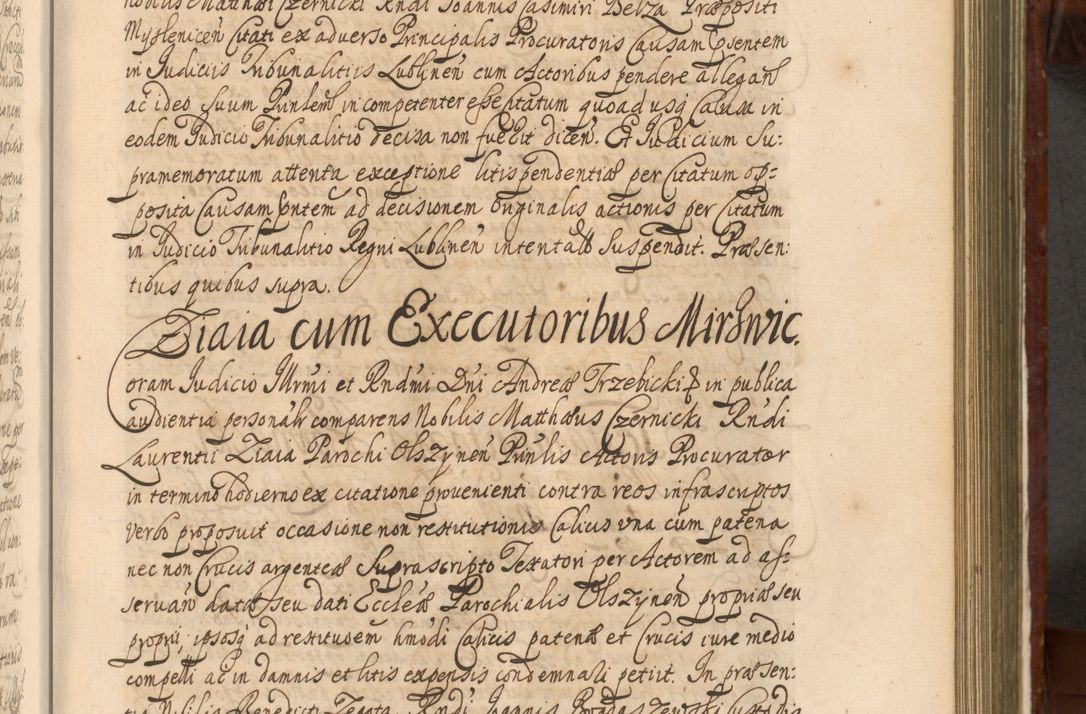 nobilis Matthæi Czernicki Rndi Joannis Casimiri Belza Præpositi
Myslenicen̄ Citati ex adverso Principalis Procuratoris Causam pñsentem
in Judiciis Tribunalitiis Lublinen̄ cum Actoribus pendere allegan̄
ac ideo suum Prinlem̄ incompetenter esse Citatum quoad usq̃ Causa in
eodem Judicio Tribunalitio decisa non fuerit dicen̄. Et Judicium Su:
pramemoratum attenta exceptione litispendentiæ per Citatum op:
posita Causam pñtem ad decisionem originalis actionis per Citatum
in Judicio Tribunalitio Regni Lublinen̄ intentatæ Suspendit. Præsen:
tibus quibus supra.
Ziaia cum Executoribus Mirswic.
Coram Judicio Illrmi et Rndmi Dni Andreæ Trzebicki in publica
audientia personalr comparens Nobilis Matthæus Czernicki Rndi
Laurentii Ziaia Parochi Olszynen̄ Prinlis Actoris Procurator
in termino hodierno ex citatione provenienti contra reos infrascriptos
verbo proposuit occasione non restitutionis Calicis una cum patena
nec non Crucis argenteæ Suprascripto Testatori per Actorem ad as:
servan̄ datæ seu dati Eccleæ Parochialis Olszynen̄ propriæ seu
proprij; ipsosq̃ ad restituden̄ hmodi Calicis patenæ et Crucis iure medio
compelli ac in damnis et litis expensis condemnari petiit. In præsen:
tia Nobilis Benedicti Zegota Rndi Joannis